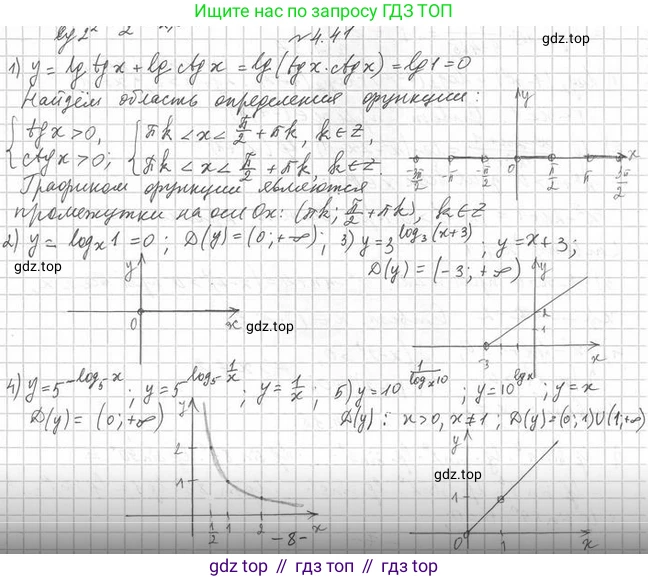 Ищите нас по запросу ГДЗ ТОП
gdz.top
№4.41
1) y = lg tg x + lg ctg x = lg (tg x · ctg x) = lg 1 = 0
Найдём область определения функции:
{ tg x > 0, { πk < x < π/2 + πk, k ∈ Z,
{ ctg x > 0; { πk < x < π/2 + πk, k ∈ Z.
y
-3π/2 -π -π/2 0 π/2 π 3π/2 x
Графиком функции являются
промежутки на оси Ox: (πk; π/2 + πk), k ∈ Z
2) y = log_x 1 = 0; D(y) = (0; +∞); 3) y = 3^(log_3 (x+3)); y = x + 3;
D(y) = (-3; +∞)
gdz.top
y
0 x
gdz.top
y
1
-3 x
4) y = 5^(-log_5 x); y = 5^(log_5 1/x); y = 1/x; 5) y = 10^(1/log_x 10); y = 10^(lg x); y = x
D(y) = (0; +∞) D(y): x > 0, x ≠ 1; D(y) = (0; 1)∪(1; +∞)
y
2
1
1/2 1 2 x
gdz.top
y
1
0 1 x
-8-
gdz.top // гдз.топ // gdz.top